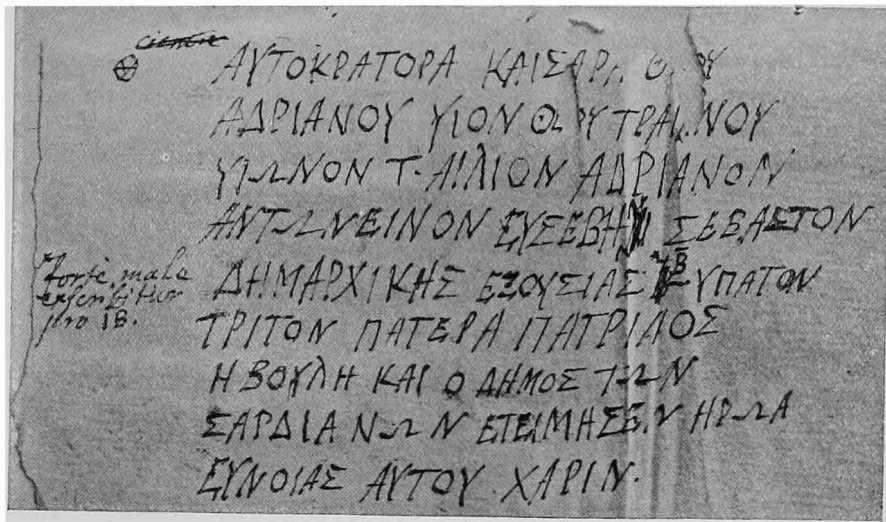 ΑΥΤΟΚΡΑΤΟΡΑ ΚΑΙΣΑΡΑ
ΑΔΡΙΑΝΟΥ ΥΙΟΝ ΘΕΟΥ ΤΡΑΙΑΝΟΥ
ΥΙΩΝΟΝ Τ· ΑΙΛΙΟΝ ΑΔΡΙΑΝΟΝ
ΑΝΤΩΝΕΙΝΟΝ ΕΥΣΕΒΗ ΣΕΒΑΣΤΟΝ
ΔΗΜΑΡΧΙΚΗΣ ΕΞΟΥΣΙΑΣ ΥΠΑΤΟΝ
ΤΡΙΤΟΝ ΠΑΤΕΡΑ ΠΑΤΡΙΔΟΣ
Η ΒΟΥΛΗ ΚΑΙ Ο ΔΗΜΟΣ ΤΩΝ
ΣΑΡΔΙΑΝΩΝ ΕΤΕΙΜΗΣΕΝ ΗΡΩΑ
ΕΥΝΟΙΑΣ ΑΥΤΟΥ ΧΑΡΙΝ.
forte male
exscribitur
pro IB.